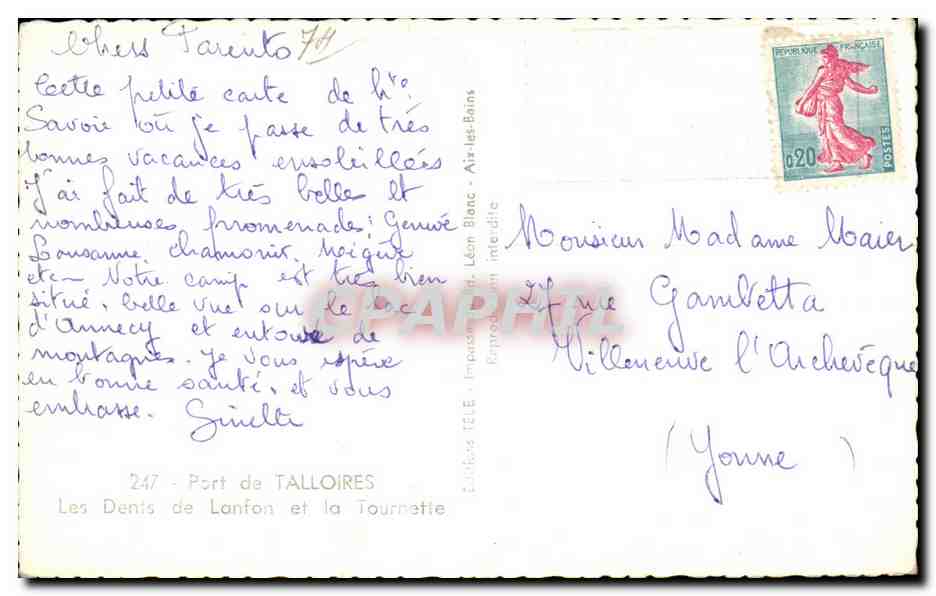 Chers Parents 74
Cette petite carte de Hte
Savoie où je passe de très
bonnes vacances ensoleillées
J'ai fait de très belles et
nombreuses promenades; Genève
Lausanne, Chamonix, Megève
etc Notre camp est très bien
situé, belle vue sur le lac
d'Annecy et entouré de
montagnes. Je vous espère
en bonne santé, et vous
embrasse. Ginette
247 - Port de TALLOIRES
Les Dents de Lanfon et la Tournette
Editions TELE - Impasse Léon Blanc - Aix-les-Bains
Reproduction interdite
CPAPHIL
REPUBLIQUE FRANÇAISE
0,20
POSTES
Monsieur Madame Maier
27 rue Gambetta
Villeneuve l'Archevêque
(Yonne)